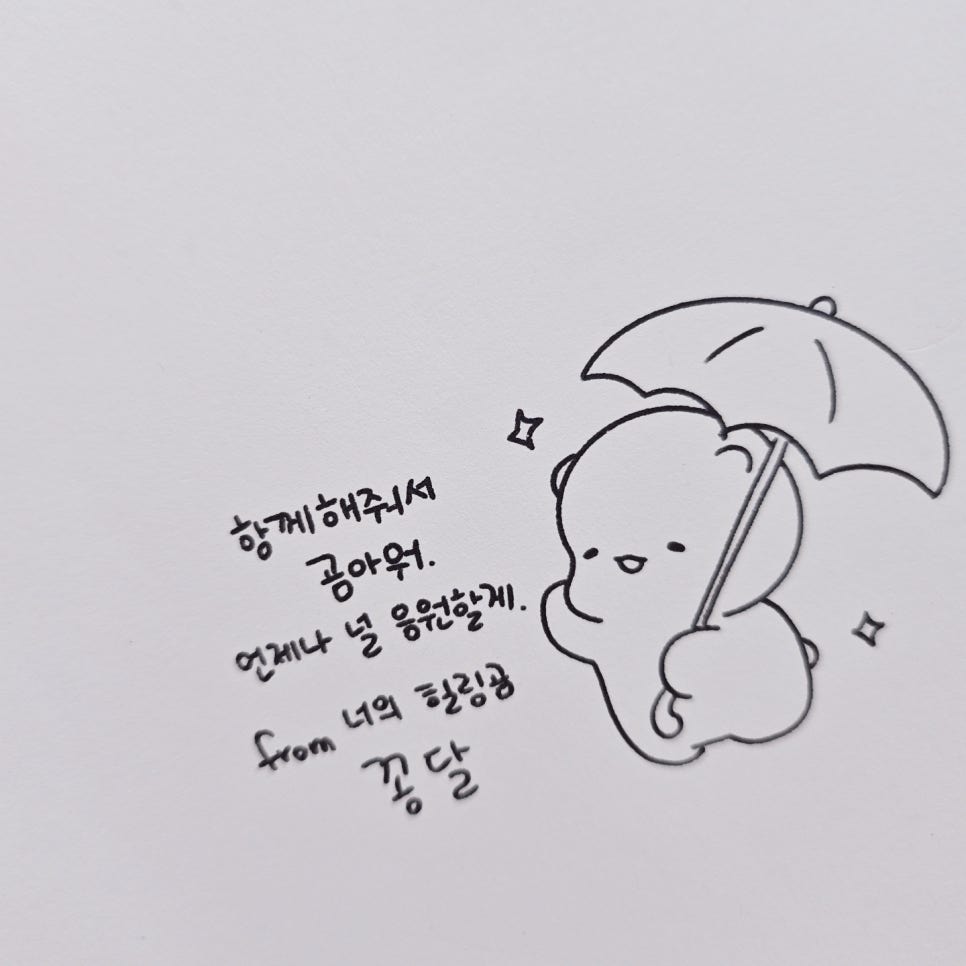 함께해줘서
곰아워.
언제나 널 응원할게.
from 너의 힐링곰
꽁달